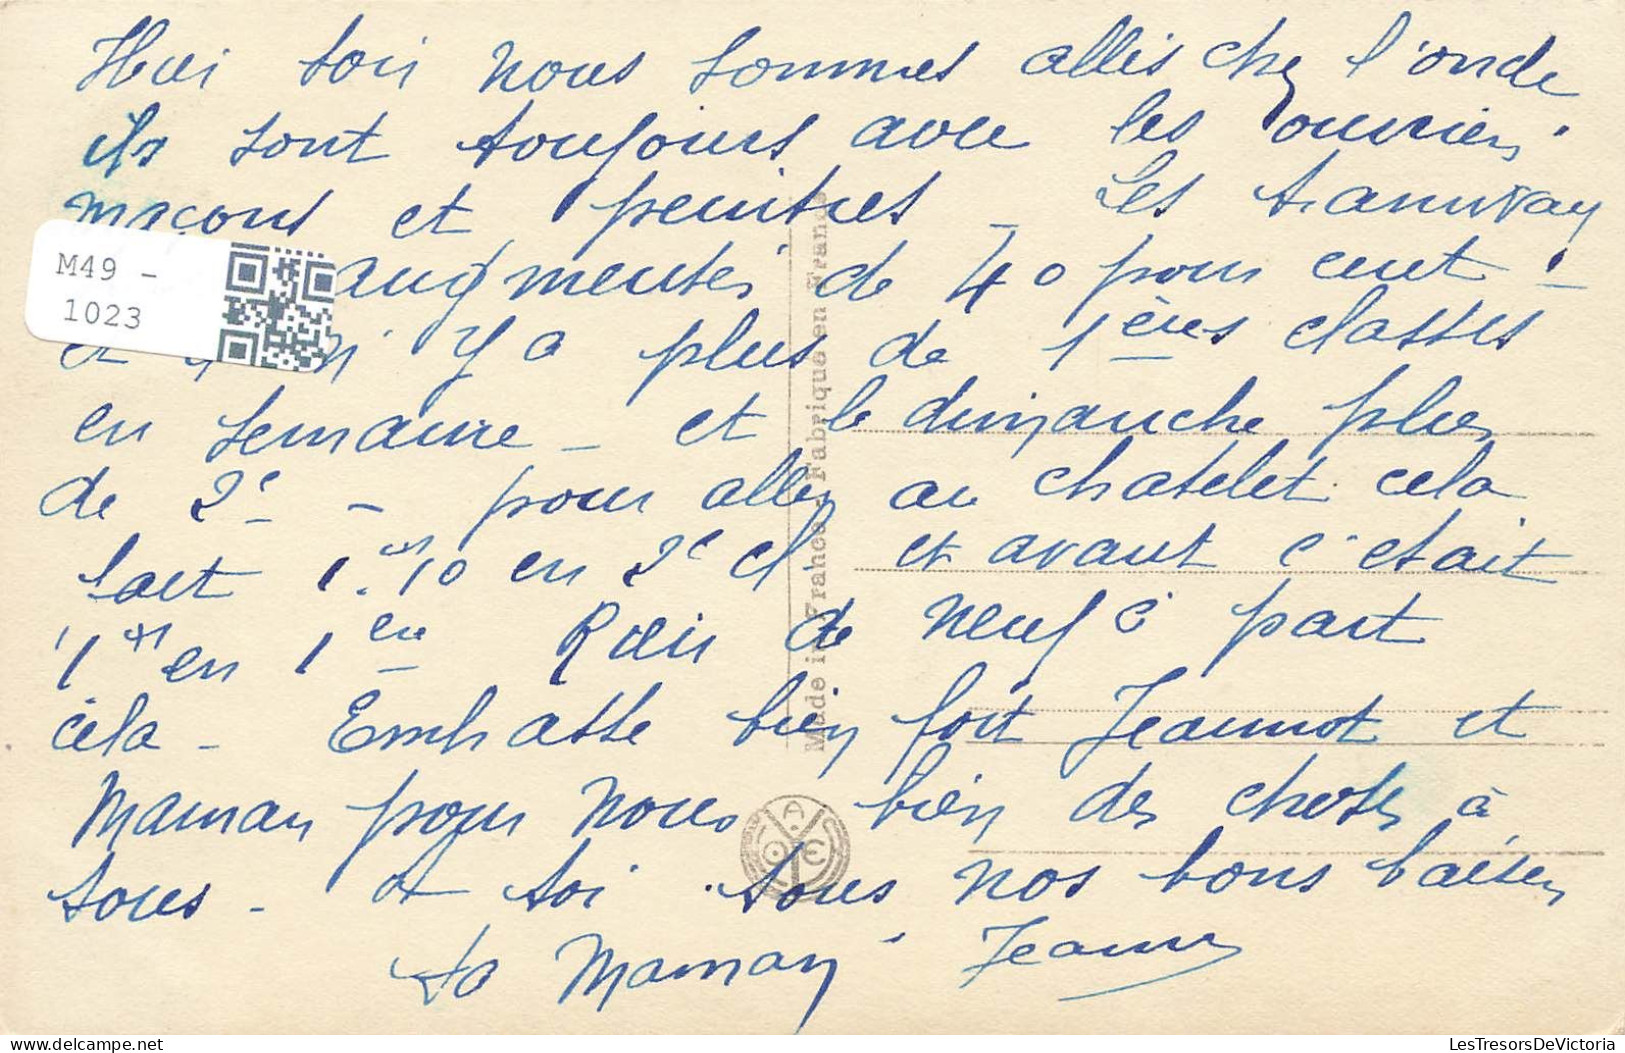 Hier soir nous sommes allés chez l'oncle
ils sont toujours avec les ouvriers
maçons et peintres – Les tramway
augmentés de 40 pour cent –
et qu'on y a plus de 1ères classes
en semaine – et le dimanche plus
de 2e – pour aller au chatelet cela
fait 1.10 en 2e cl et avant c'était
1 en 1ere Rien de neuf à part
cela – Embrasse bien fort Jeannot et
Maman pour nous bien des choses à
tous – et toi tous nos bons baisers
ta Maman Jeanne
Made in France - Fabriqué en France
A
O E
M49 -
1023
LesTresorsDeVictoria | delcampe.net